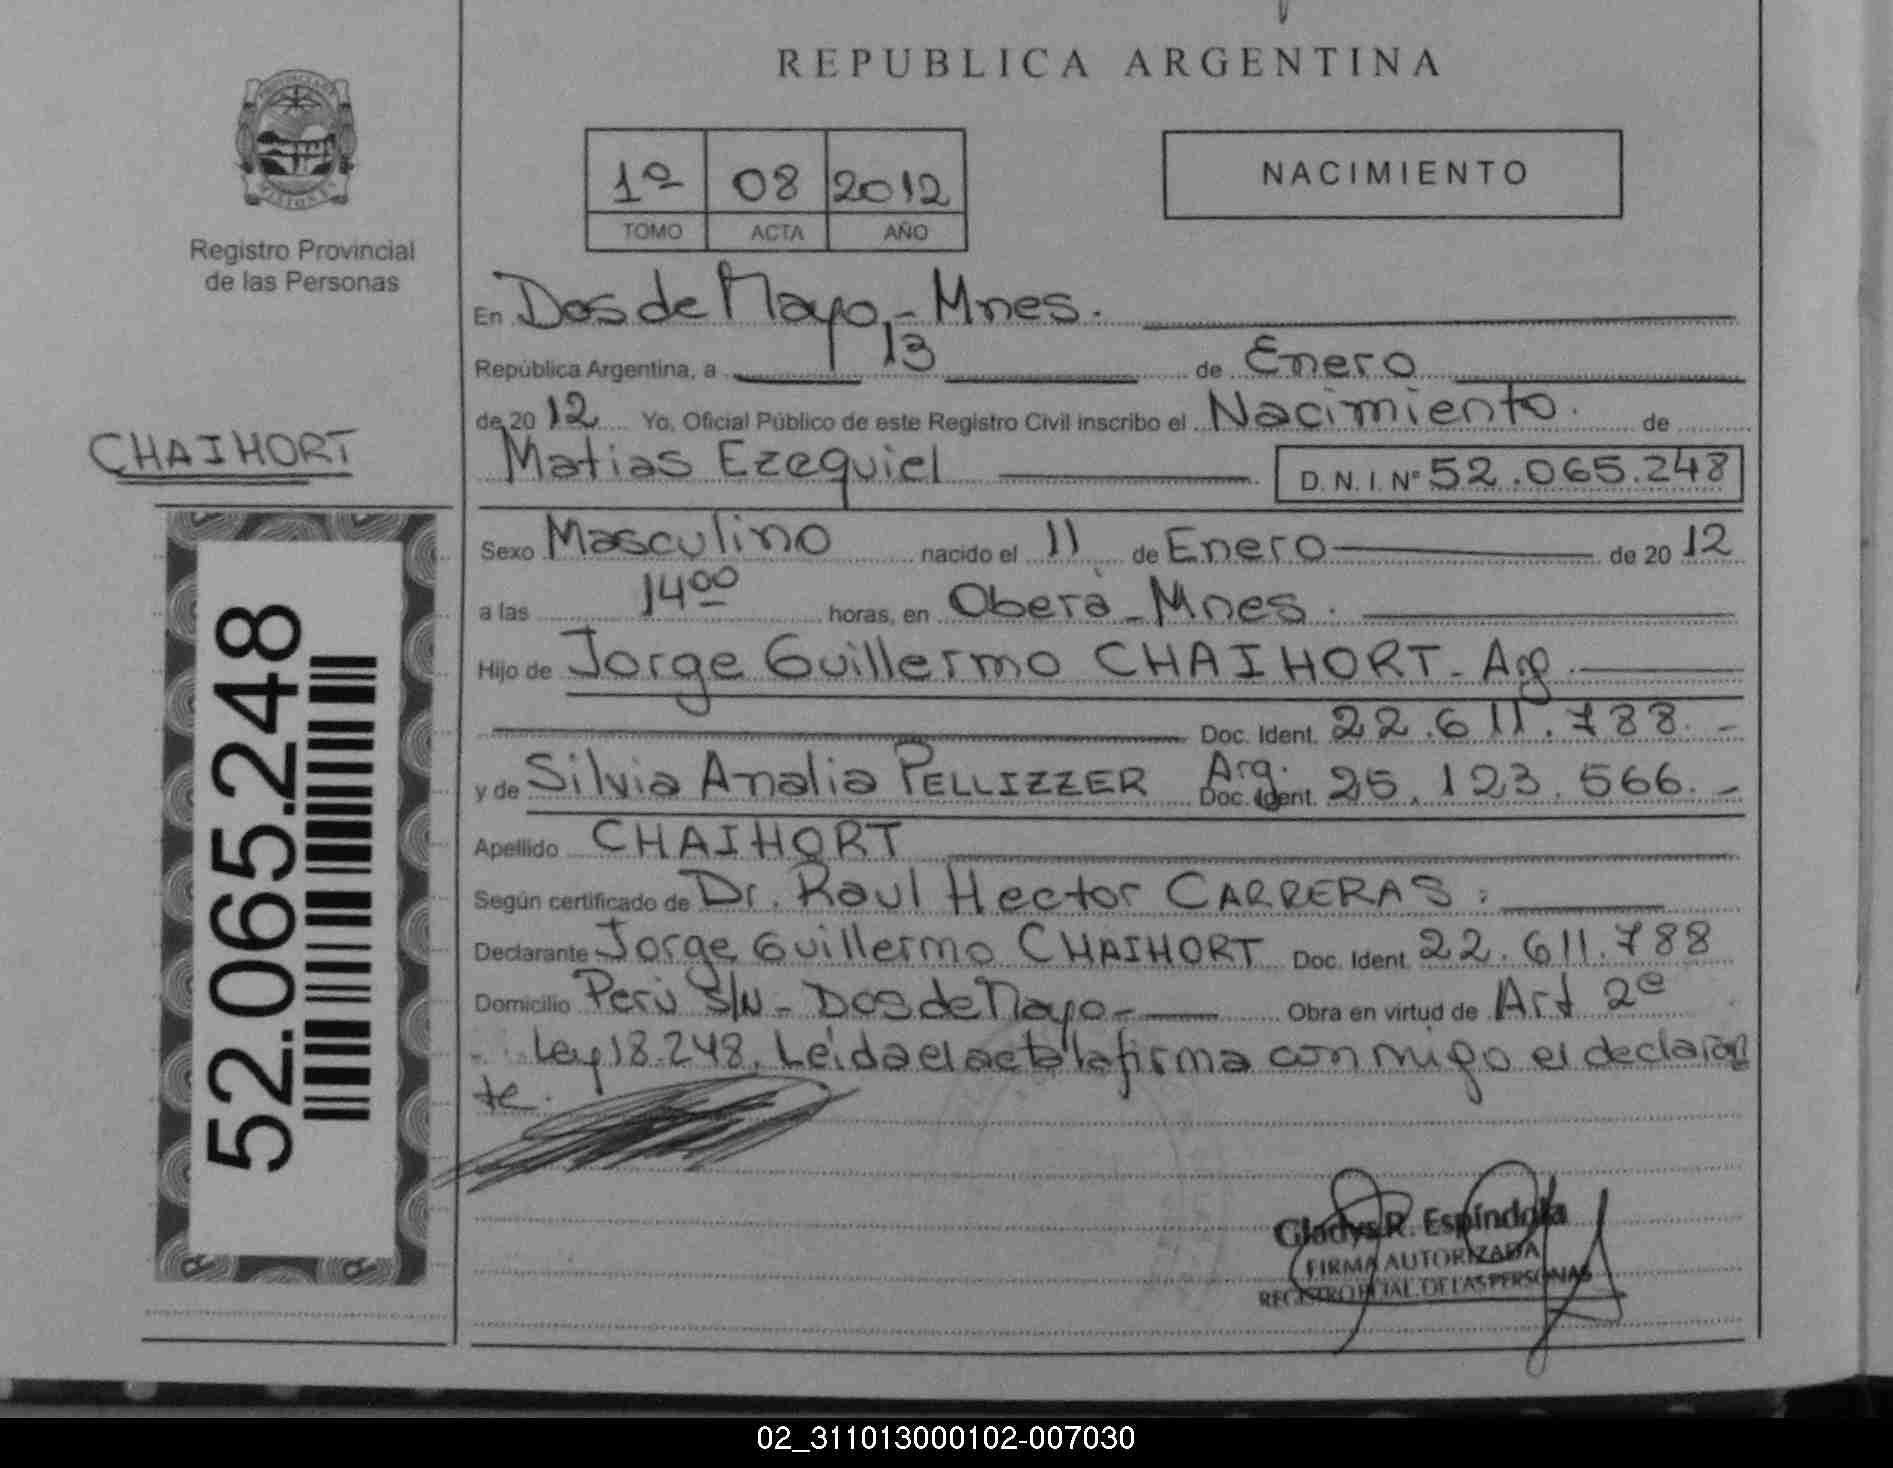 REPUBLICA ARGENTINA
1º 08 2012
TOMO ACTA AÑO
NACIMIENTO
Registro Provincial
de las Personas
CHAIHORT
52.065.248
En Dos de Mayo - Mnes.
República Argentina, a 13 de Enero
de 2012 Yo, Oficial Público de este Registro Civil inscribo el Nacimiento. de
Matias Ezequiel D.N.I. Nº 52.065.248
Sexo Masculino nacido el 11 de Enero de 2012
a las 14 00 horas, en Oberá - Mnes.
Hijo de Jorge Guillermo CHAIHORT - Arg.
Doc. Ident. 22.611.788.-
y de Silvia Analia PELLIZZER Arg. Doc. Ident. 25.123.566.-
Apellido CHAIHORT
Según certificado de Dr. Raul Hector CARRERAS.
Declarante Jorge Guillermo CHAIHORT Doc. Ident. 22.611.788
Domicilio Perú S/N - Dos de Mayo - Obra en virtud de Art 2º
Ley 18.248. Leída el acta la firma conmigo el declaran
te.
Gladys R. Espíndola
FIRMA AUTORIZADA
REGISTRO PCIAL. DE LAS PERSONAS
02_311013000102-007030